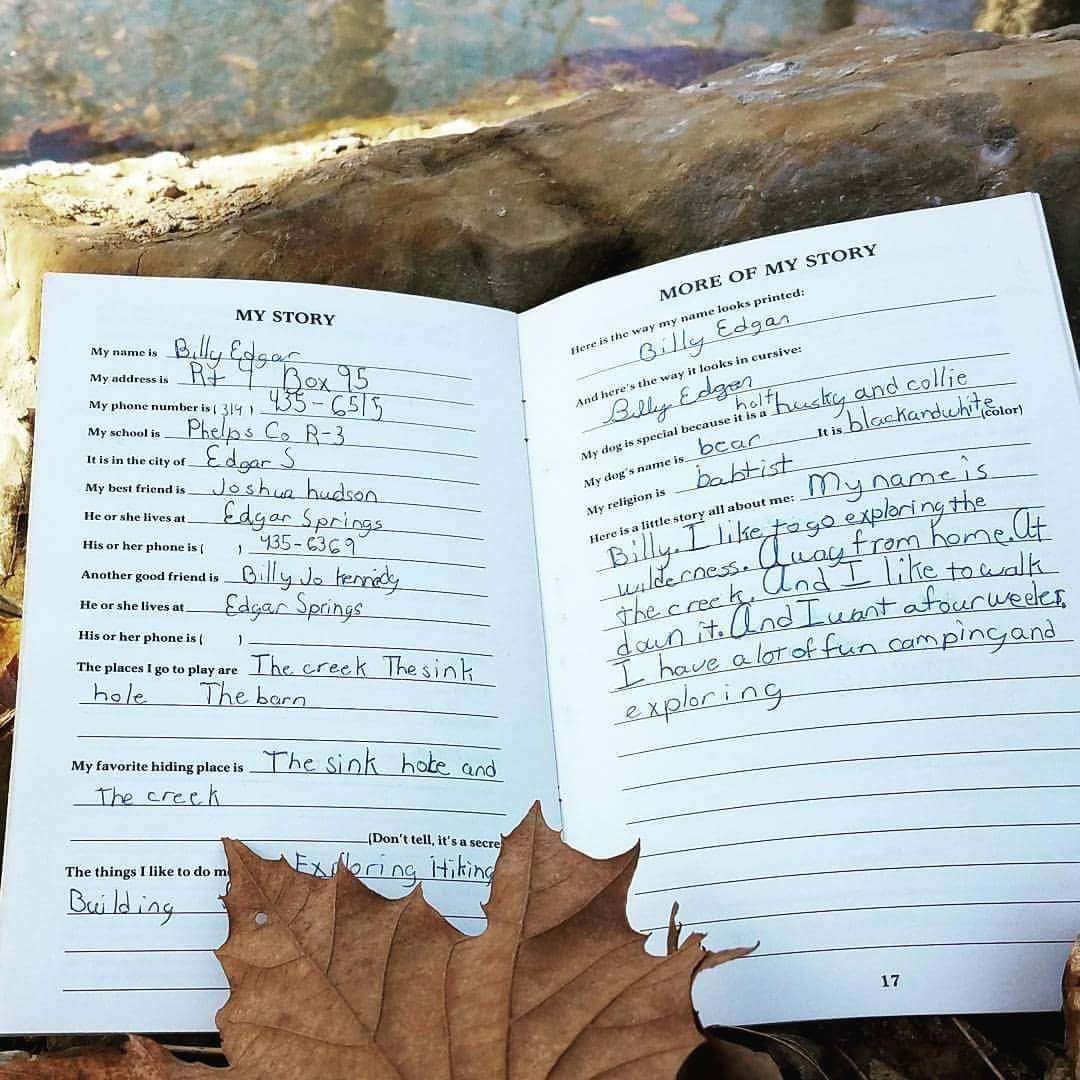 MY STORY
My name is Billy Edgar
My address is Rt 4 Box 95
My phone number is (314) 435-6515
My school is Phelps Co R-3
It is in the city of Edgar S
My best friend is Joshua hudson
He or she lives at Edgar Springs
His or her phone is ( ) 435-6369
Another good friend is Billy Jo kennedy
He or she lives at Edgar Springs
His or her phone is ( )
The places I go to play are The creek The sink
hole The barn
My favorite hiding place is The sink hole and
The creek
(Don't tell, it's a secre
The things I like to do m Exploring Hiking
Building
MORE OF MY STORY
Here is the way my name looks printed:
Billy Edgar
And here's the way it looks in cursive:
Billy Edgar
My dog is special because it is a half husky and collie
My dog's name is bear It is blackandwhite (color)
My religion is babtist
Here is a little story all about me: My name is
Billy. I like to go exploring the
wilderness. Away from home. At
the creek. And I like to walk
down it. And I want a four weeler.
I have a lot of fun camping and
exploring
17